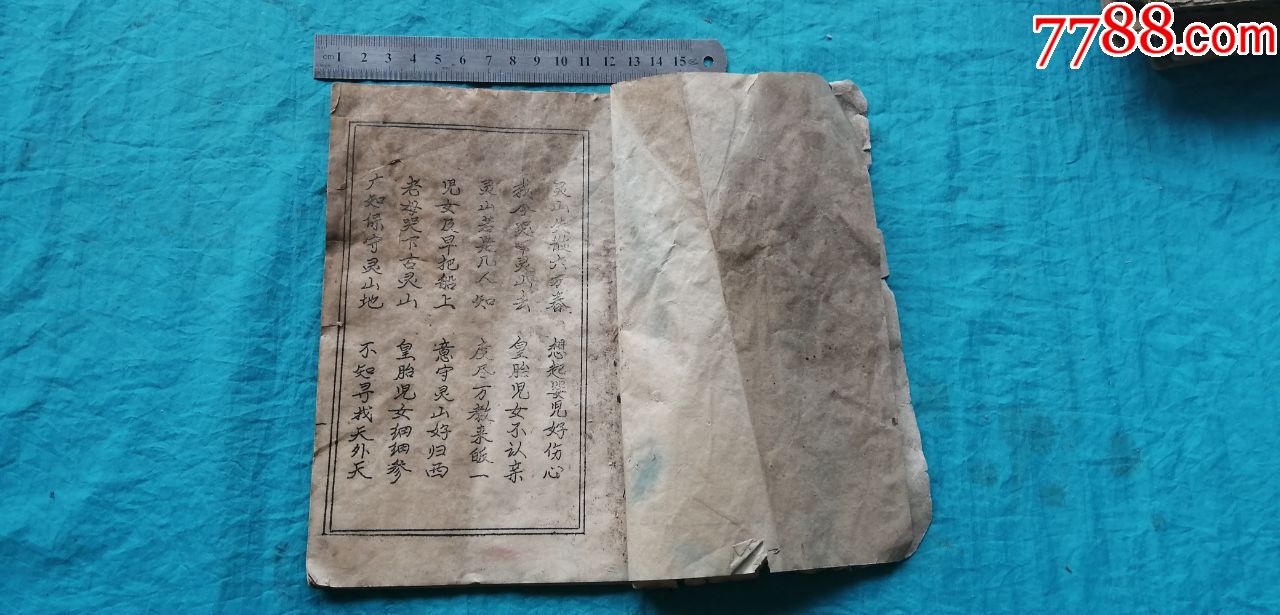 7788.com
cm 1 2 3 4 5 6 7 8 9 10 11 12 13 14 15
灵山失散六万春 想起婴児好伤心
我今哭灵山去 皇胎児女不认亲
灵山苦景几人知 度尽万教来皈一
児女及早把船上 意守灵山好归西
老母哭下古灵山 皇胎児女细细参
广知保守灵山地 不知寻找天外天